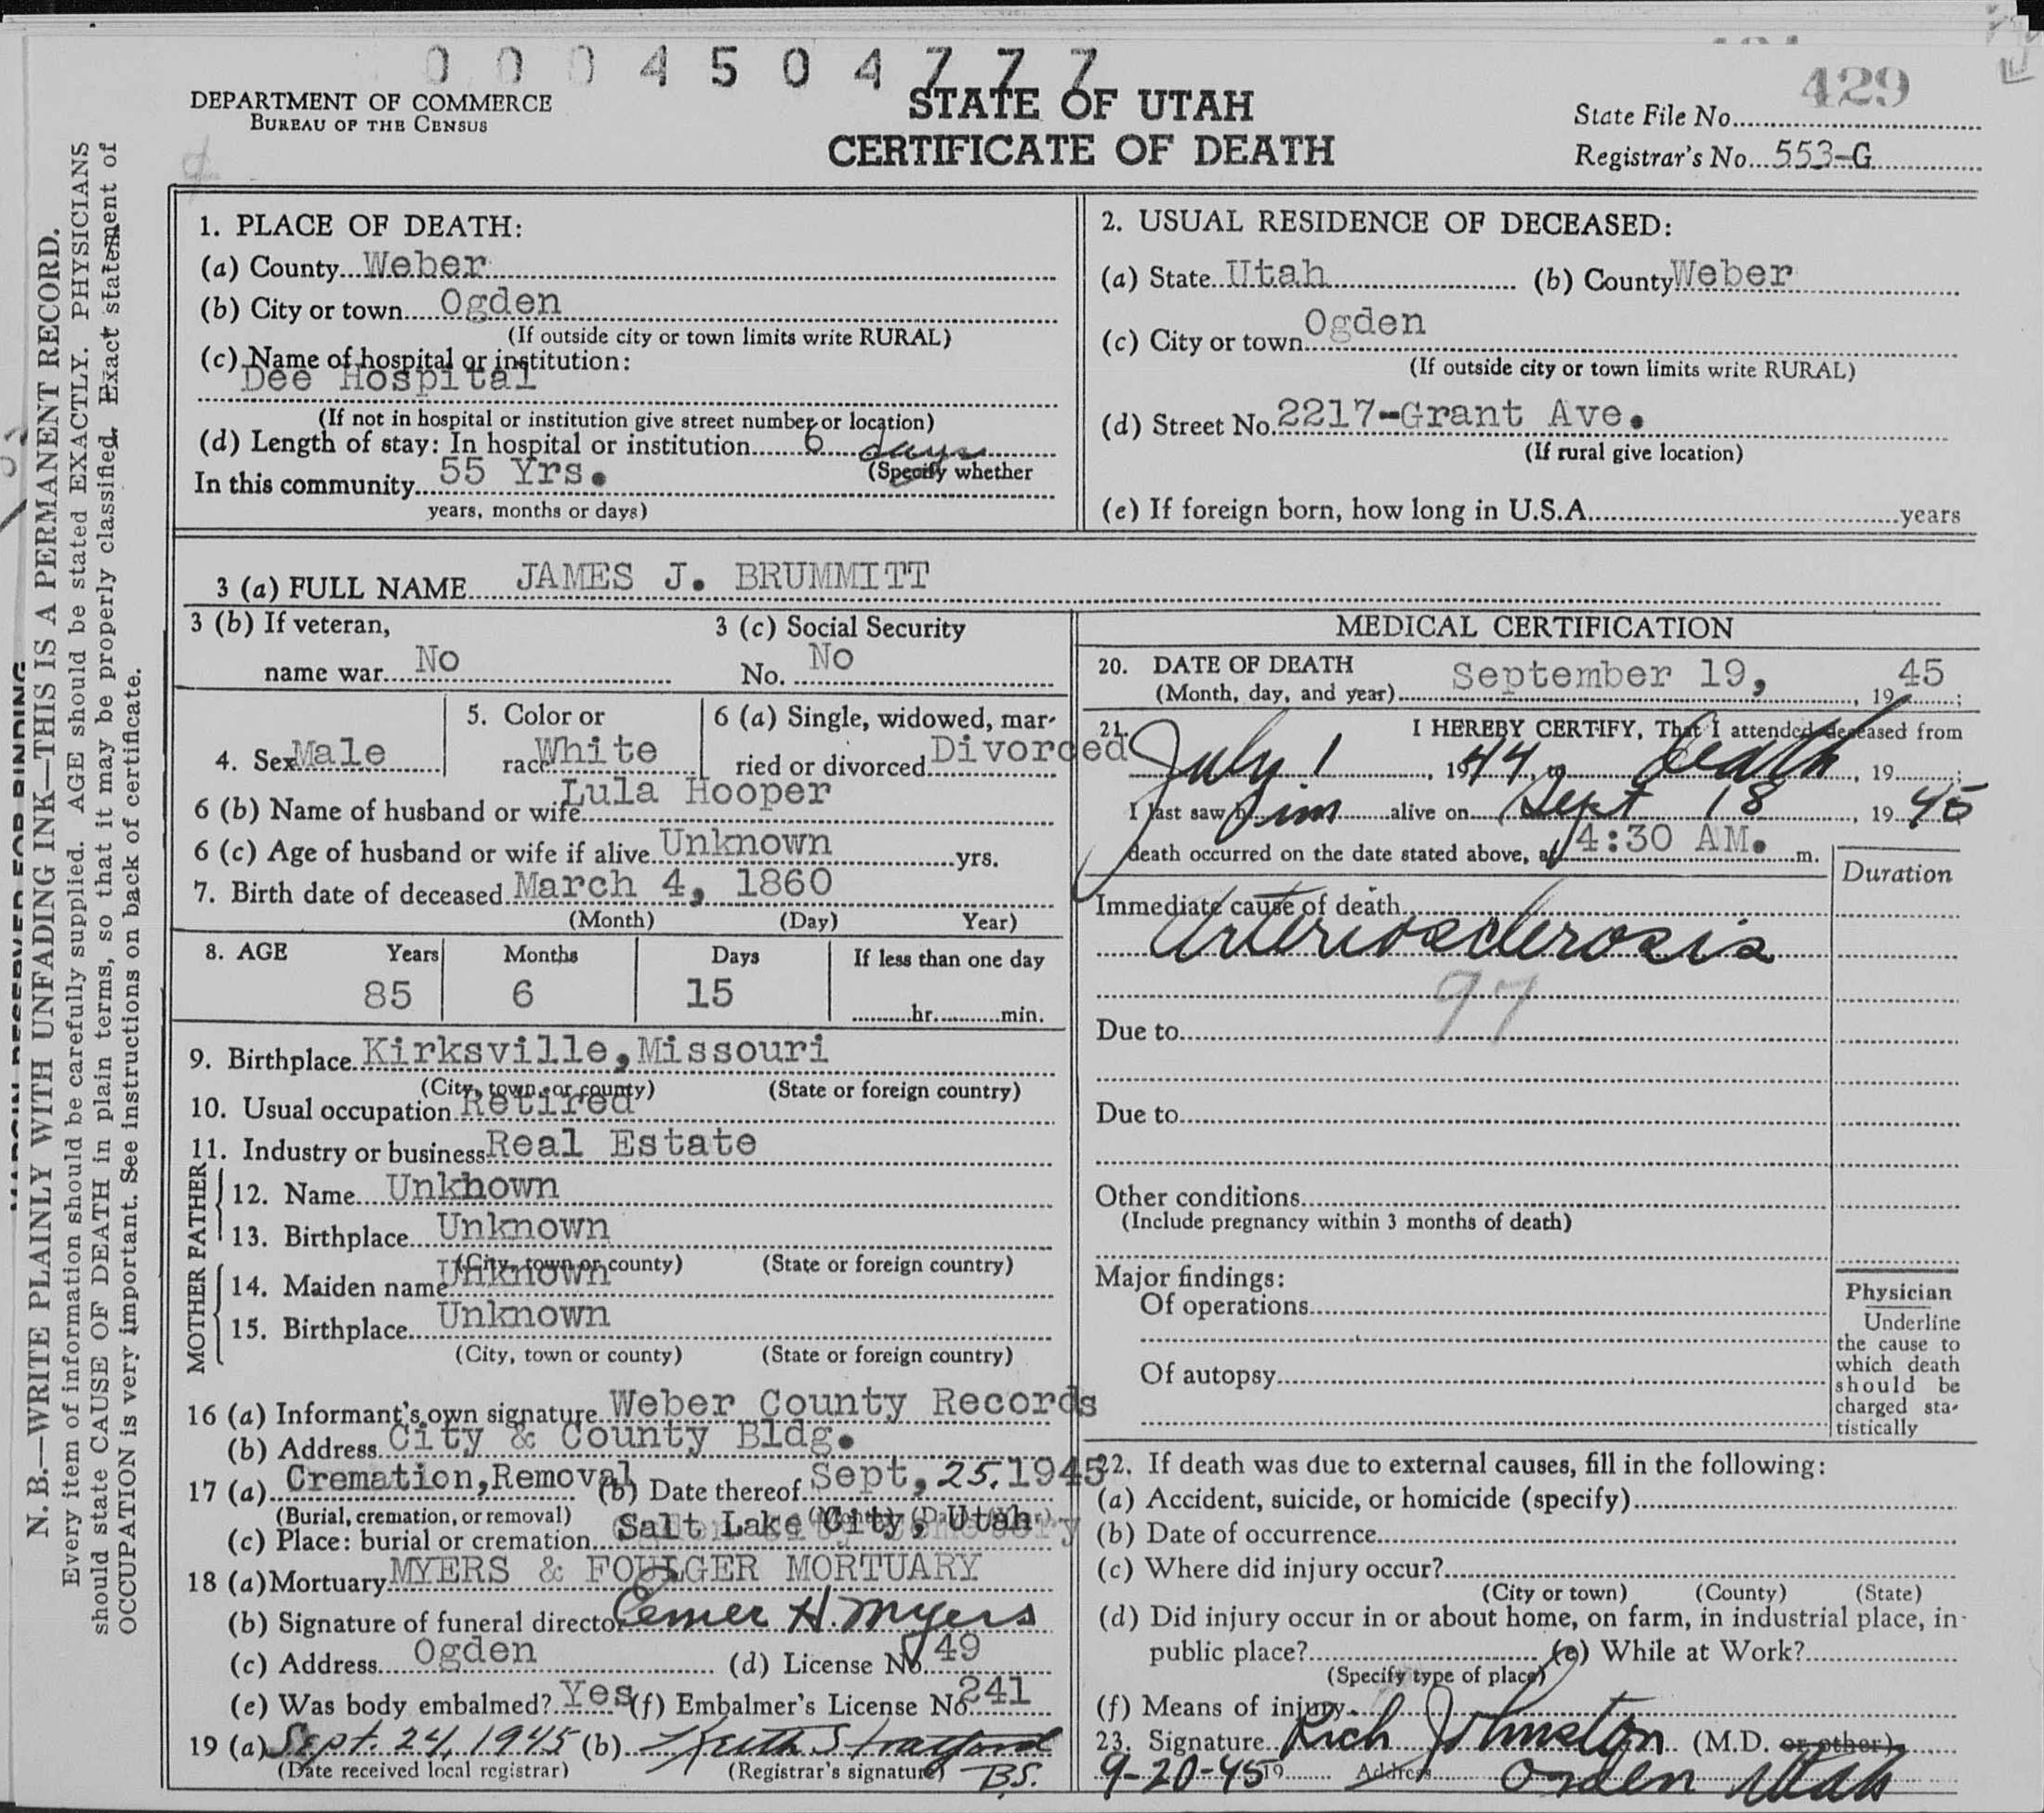 0 0 0 4 5 0 4 7 7 7
DEPARTMENT OF COMMERCE
BUREAU OF THE CENSUS
STATE OF UTAH
CERTIFICATE OF DEATH
429
State File No.
Registrar's No. 553-G
N. B.—WRITE PLAINLY WITH UNFADING INK—THIS IS A PERMANENT RECORD.
Every item of information should be carefully supplied. AGE should be stated EXACTLY. PHYSICIANS
should state CAUSE OF DEATH in plain terms, so that it may be properly classified. Exact statement of
OCCUPATION is very important. See instructions on back of certificate.
1. PLACE OF DEATH:
(a) County Weber
(b) City or town Ogden
(If outside city or town limits write RURAL)
(c) Name of hospital or institution:
Dee Hospital
(If not in hospital or institution give street number or location)
(d) Length of stay: In hospital or institution 6 days
(Specify whether
In this community 55 Yrs.
years, months or days)
2. USUAL RESIDENCE OF DECEASED:
(a) State Utah (b) County Weber
(c) City or town Ogden
(If outside city or town limits write RURAL)
(d) Street No. 2217-Grant Ave.
(If rural give location)
(e) If foreign born, how long in U.S.A. years
3 (a) FULL NAME JAMES J. BRUMMITT
3 (b) If veteran,
name war No
3 (c) Social Security
No. No
4. Sex Male
5. Color or
race White
6 (a) Single, widowed, mar-
ried or divorced Divorced
6 (b) Name of husband or wife Lula Hooper
6 (c) Age of husband or wife if alive Unknown yrs.
7. Birth date of deceased March 4, 1860
(Month) (Day) Year)
8. AGE Years Months Days If less than one day
85 6 15 hr. min.
9. Birthplace Kirksville, Missouri
(City, town or county) (State or foreign country)
10. Usual occupation Retired
11. Industry or business Real Estate
FATHER
12. Name Unkhown
13. Birthplace Unknown
(City, town or county) (State or foreign country)
MOTHER
14. Maiden name Unknown
15. Birthplace Unknown
(City, town or county) (State or foreign country)
16 (a) Informant's own signature Weber County Records
(b) Address City & County Bldg.
17 (a) Cremation, Removal (b) Date thereof Sept, 25, 1945
(Burial, cremation, or removal)
(c) Place: burial or cremation Salt Lake City, Utah
18 (a) Mortuary MYERS & FOULGER MORTUARY
(b) Signature of funeral director Elmer H. Myers
(c) Address Ogden (d) License No. 49
(e) Was body embalmed? Yes (f) Embalmer's License No. 241
19 (a) Sept. 24, 1945 (b) Keith Stratford
(Date received local registrar) (Registrar's signature) B.S.
MEDICAL CERTIFICATION
20. DATE OF DEATH
(Month, day, and year) September 19, 1945;
21. I HEREBY CERTIFY, That I attended deceased from
July 1, 1944, to death, 19 ;
I last saw him alive on Sept 18, 1945
death occurred on the date stated above, at 4:30 AM. m.
Duration
Immediate cause of death
Arteriosclerosis
97
Due to
Due to
Other conditions
(Include pregnancy within 3 months of death)
Major findings:
Of operations
Of autopsy
Physician
Underline
the cause to
which death
should be
charged sta-
tistically
22. If death was due to external causes, fill in the following:
(a) Accident, suicide, or homicide (specify)
(b) Date of occurrence
(c) Where did injury occur?
(City or town) (County) (State)
(d) Did injury occur in or about home, on farm, in industrial place, in
public place? (e) While at Work?
(Specify type of place)
(f) Means of injury
23. Signature Rich Johnston (M.D. or other)
9-20-45 19 Address Ogden Utah